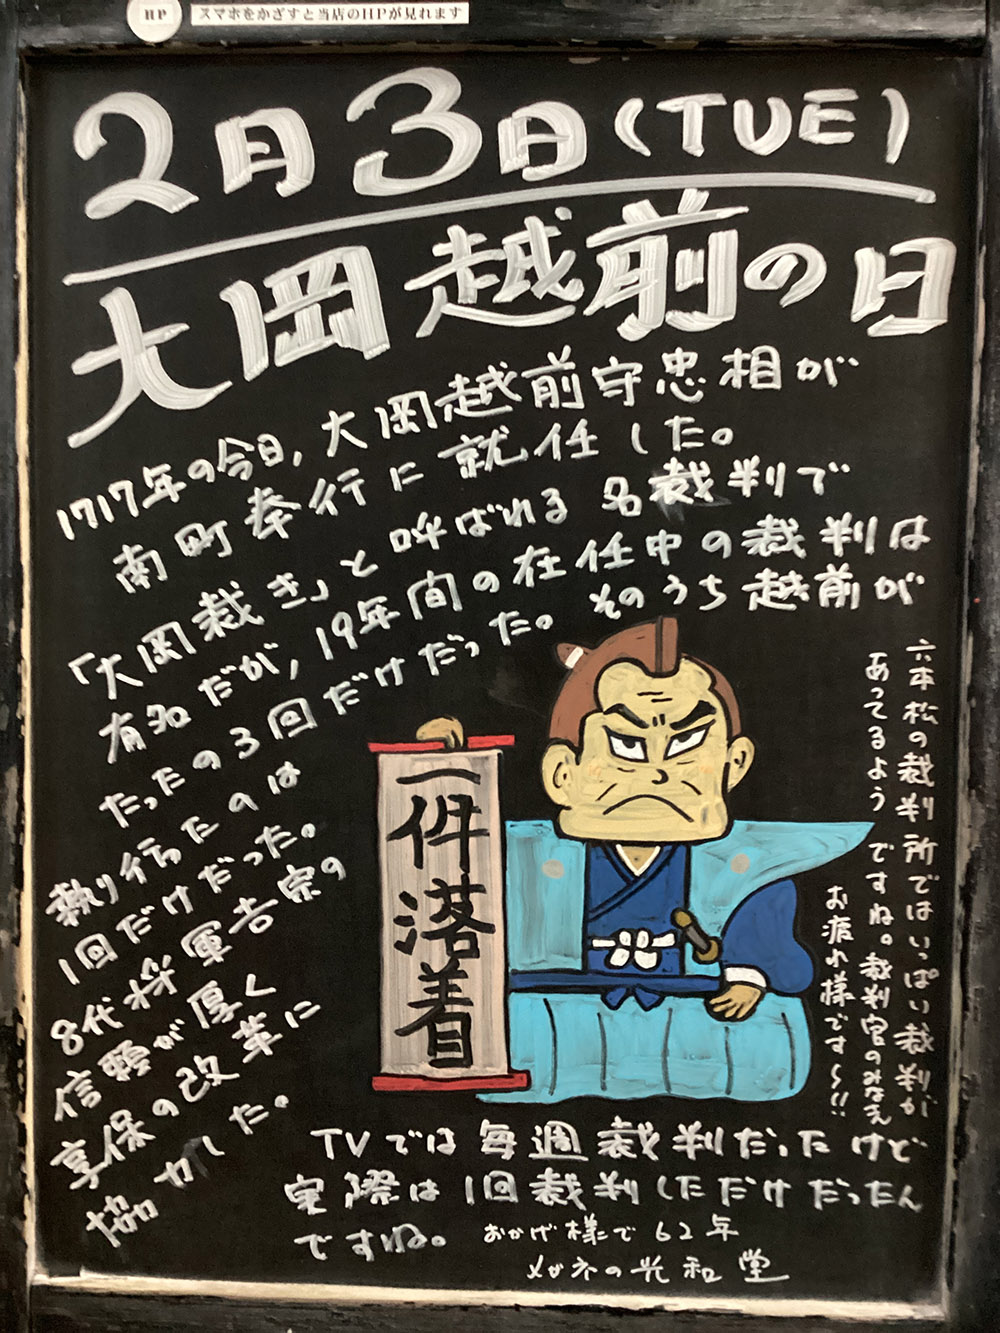 HP
スマホをかざすと当店のHPが見れます
2月3日(TUE)
大岡越前の日
1717年の今日,大岡越前守忠相が
南町奉行に就任した。
「大岡裁き」と呼ばれる名裁判で
有名だが,19年間の在任中の裁判は
たったの3回だけだった。そのうち越前が
執り行ったのは
1回だけだった。
8代将軍吉宗の
信頼が厚く
享保の改革に
協力した。
一件落着
六本松の裁判所ではいっぱい裁判が
あってるようですね。裁判官のみなさん
お疲れ様です〜!!
TVでは毎週裁判だったけど
実際は1回裁判しただけだったん
ですね。
おかげ様で62年
メガネの光和堂